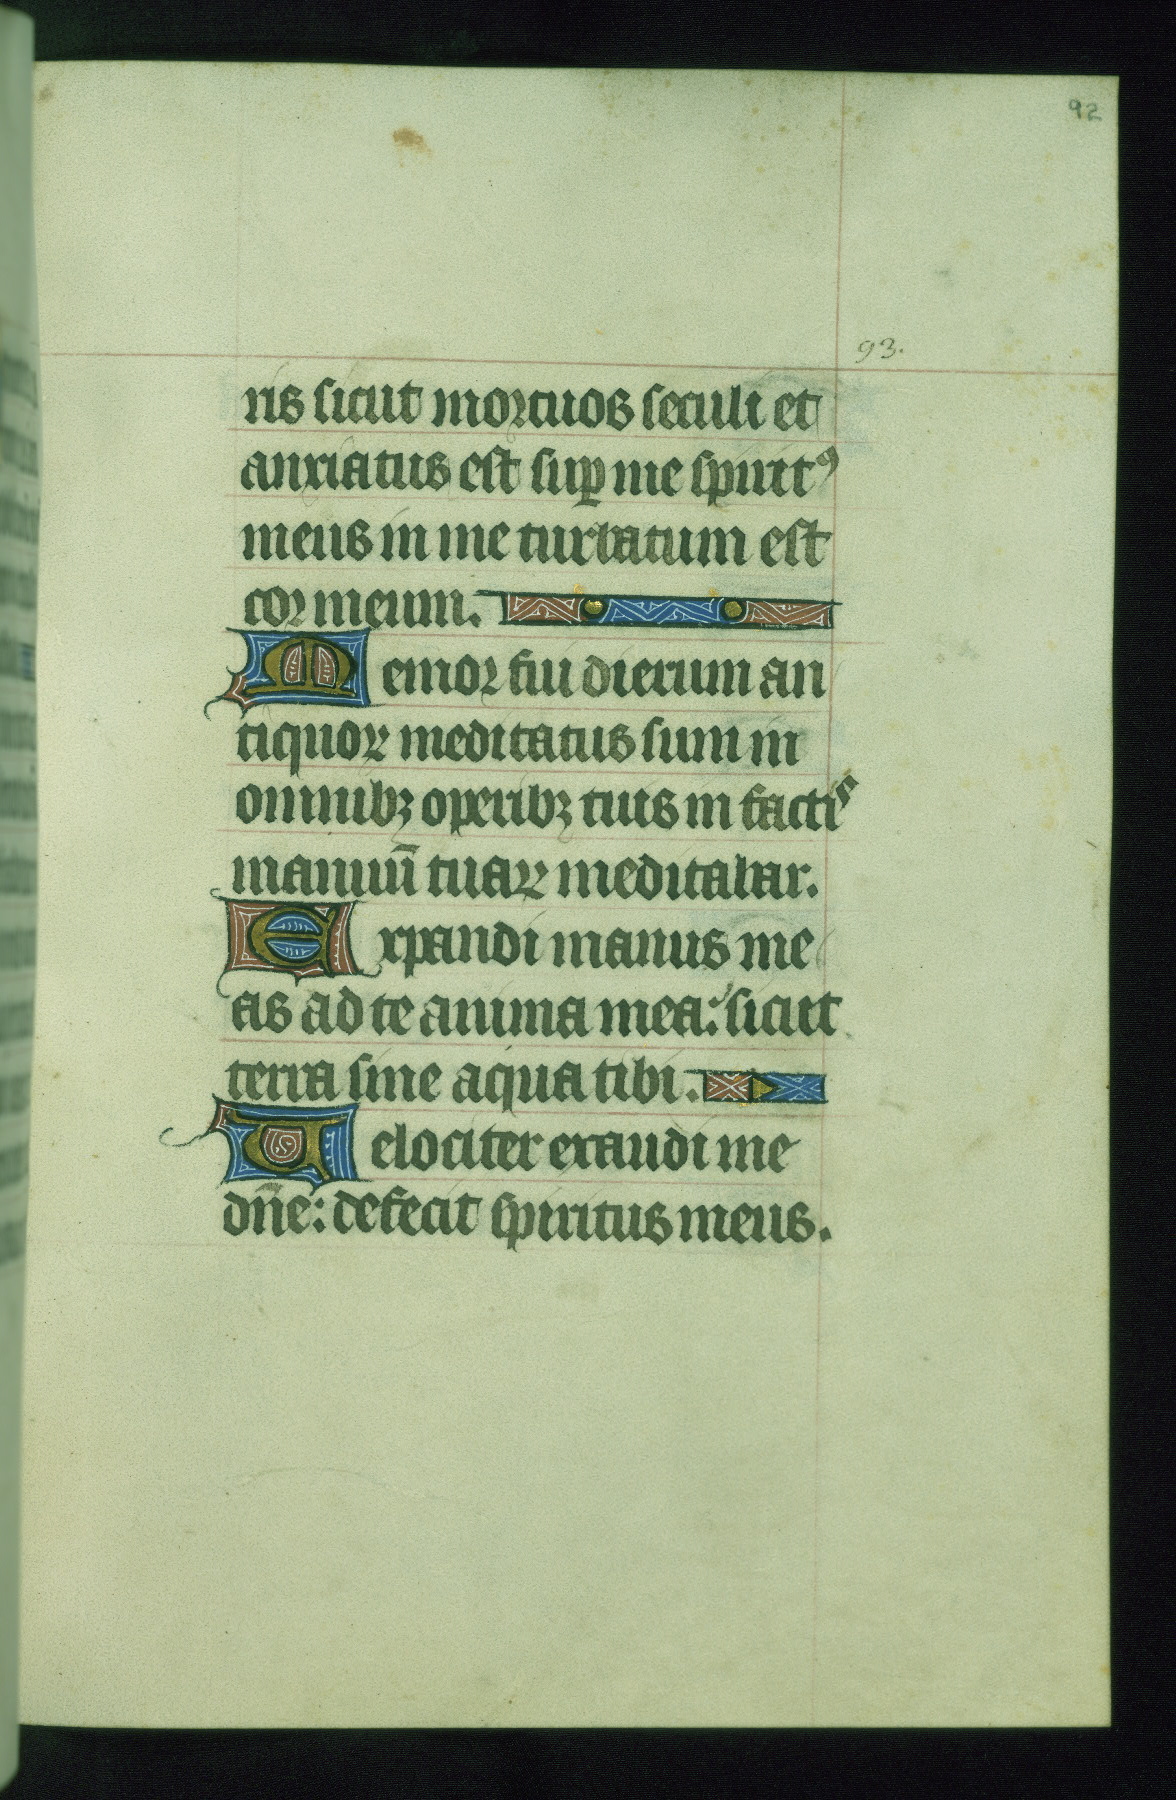 92
93.
ris sicut mortuos seculi et
anxiatus est suꝑ me spiritꝰ
meus in me turbatum est
cor meum.
Memor fui dierum an
tiquoꝝ meditatus sum in
omnibꝫ operibꝫ tuis in factis
manuū tuaꝝ meditabar.
Expandi manus me
as ad te anima mea: sicut
terra sine aqua tibi.
Velociter exaudi me
dn̄e: defecit spiritus meus.